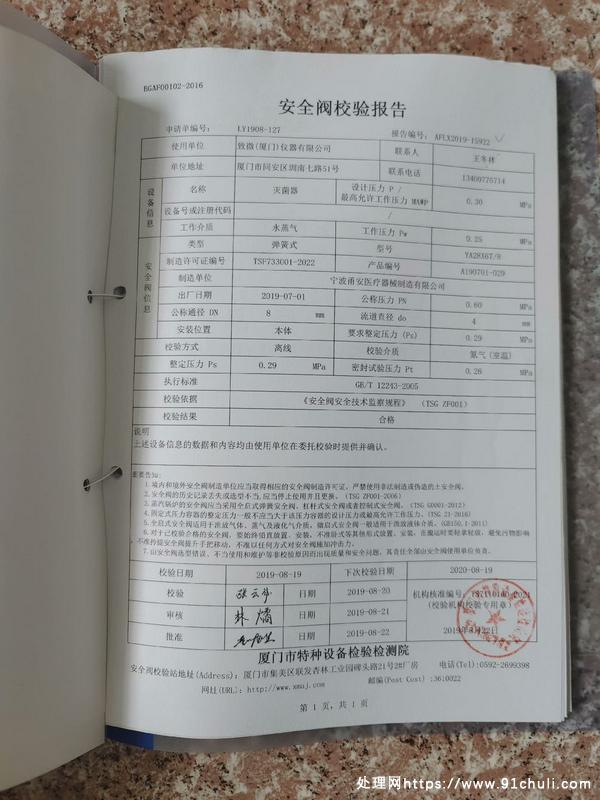 BGAF00102-2016
安全阀校验报告
申请单编号: LY1908-127 报告编号: AFLX2019-15922
使用单位 致微(厦门)仪器有限公司 联系人 王冬林
单位地址 厦门市同安区圳南七路51号 联系电话 13400776714
设备信息
名称 灭菌器 设计压力 P / 最高允许工作压力 MAWP 0.30 MPa
设备号或注册代码 /
工作介质 水蒸气 工作压力 Pw 0.25 MPa
安全阀信息
类型 弹簧式 型号 YA28X6T/R
制造许可证编号 TSF733001-2022 产品编号 A190701-029
制造单位 宁波甬安医疗器械制造有限公司
出厂日期 2019-07-01 公称压力 PN 0.60 MPa
公称通径 DN 8 mm 流道直径 do 4 mm
安装位置 本体 要求整定压力 (Ps) 0.29 MPa
校验方式 离线 校验介质 氮气(室温)
整定压力 Ps 0.29 MPa 密封试验压力 Pt 0.26 MPa
执行标准 GB/T 12243-2005
校验依据 《安全阀安全技术监察规程》 (TSG ZF001)
校验结果 合格
说明
上述设备信息的数据和内容均由使用单位在委托校验时提供并确认。
重要告知:
1.境内和境外安全阀制造单位应当取得相应的安全阀制造许可证，严禁使用非法制造或伪造的土安全阀。
2.安全阀的历史记录丢失或选型不当,应当停止使用并且更换。(TSG ZF001-2006)
3.蒸汽锅炉的安全阀应当采用全启式弹簧安全阀、杠杆式安全阀或者控制式安全阀。(TSG G0001-2012)
4.固定式压力容器的整定压力一般不应当大于该压力容器的设计压力或最高允许工作压力。(TSG 21-2016)
5.全启式安全阀适用于泄放气体、蒸气及液化气介质，微启式安全阀一般适用于泄放液体介质。(GB150.1-2011)
6.对于已校验合格的安全阀，要始终铅直放置、安装，不准卧式等其他形式放置、安装，在搬运时要轻拿轻放，避免污物影响
，不准拎提安全阀提升手把移动，不准以任何方式对安全阀施加冲击力。
7.安全阀选型错误、不当使用和维护等非校验原因而出现质量和安全问题，其责任全部由安全阀使用单位负责。
校验日期 2019-08-19 下次校验日期 2020-08-19
校验 日期 2019-08-20 机构核准编号:
审核 林 日期 2019-08-21 (校验机构校验专用章)
批准 日期 2019-08-22 2019年8月22日
厦门市特种设备检验检测院
安全阀校验站地址(Address): 厦门市集美区联发杏林工业园碑头路21号2#厂房 电话(Tel):0592-2699398
网址(URL): http://www.xmaj.com 邮编(Post Cost) :3610022
第 1 页, 共 1 页
处理网https://www.91chuli.com/